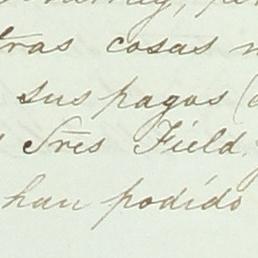 tras cosas
sus pagos (
Sres Field
han podido